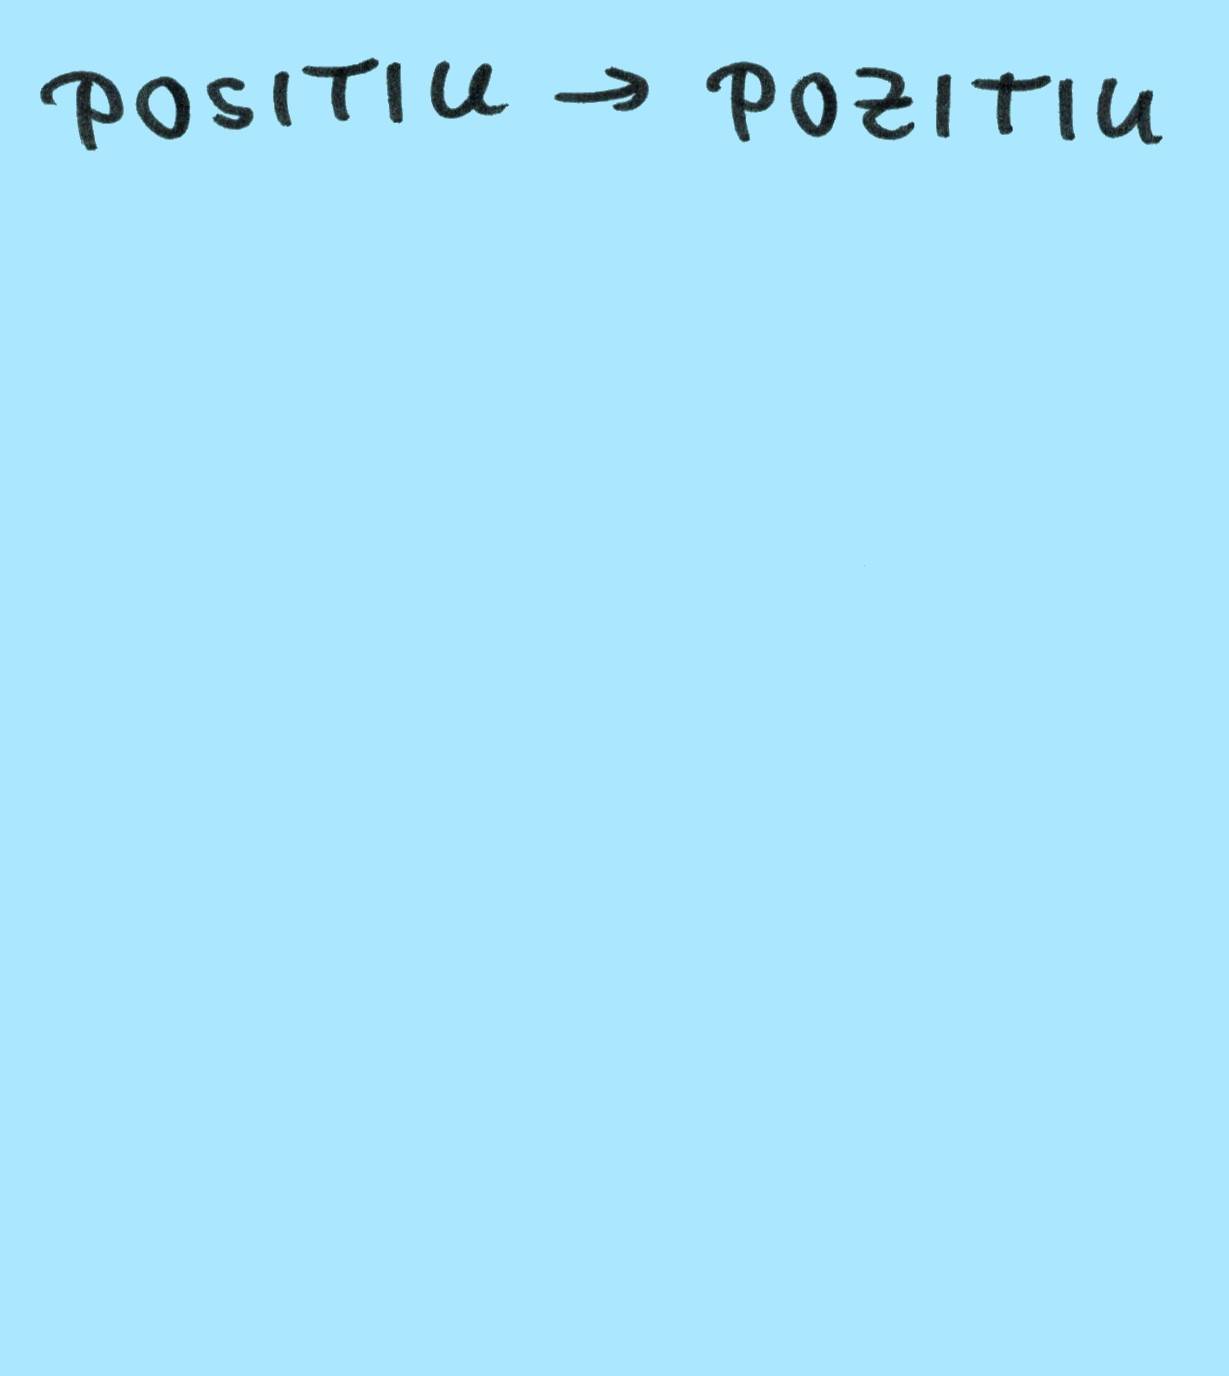 POSITIU → POZITIU